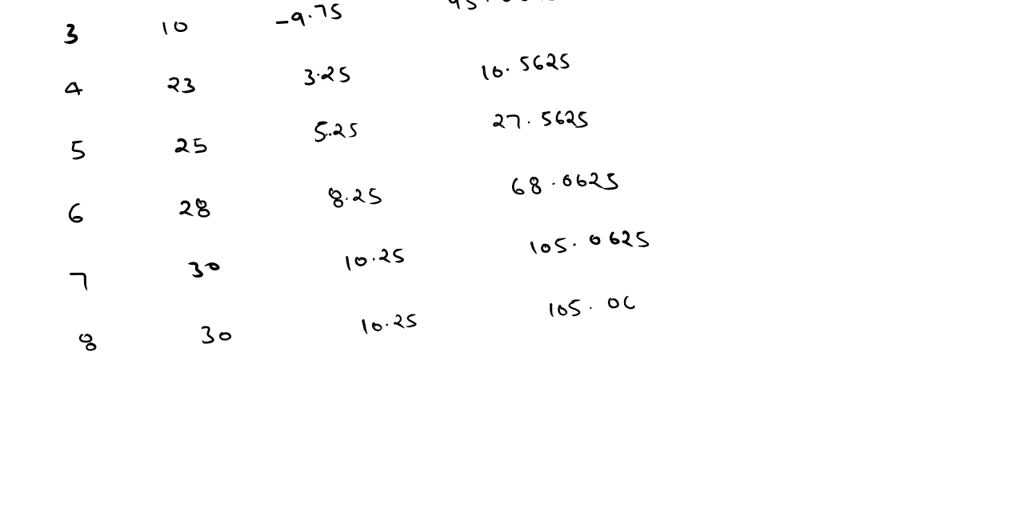 3 10 -9.75
4 23 3.25 10.5625
5 25 5.25 27.5625
6 28 8.25 68.0625
7 30 10.25 105.0625
8 30 10.25 105.0